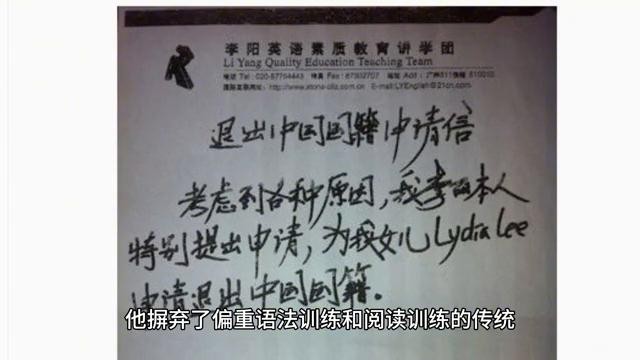 李阳英语素质教育讲学团
Li Yang Quality Education Teaching Team
电话 Tel : 020-87764443 传真 Fax : 87302707 地址 Add : 广州511信箱 510010
国际互联网址: E-mail:LYEnglish@21cn.com
退出中国国籍申请信
考虑到各种原因,我李阳本人
特别提出申请,为我女儿Lydia Lee
申请退出中国国籍。
他摒弃了偏重语法训练和阅读训练的传统